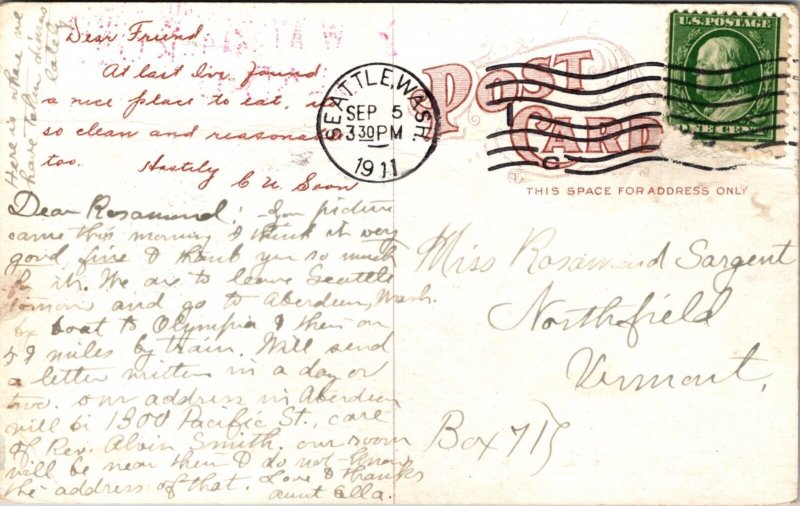 Here is where we
have taken dinner
lately
Dear Friend
At last I've found
a nice place to eat,
so clean and reasonable
too. Hastily C U Soon
Dear Rosamond: Your picture
came this morning & I think it very
good fine & thank you so much
for it. We are to leave Seattle
tomorrow and go to Aberdeen, Wash.
by boat to Olympia & then on
59 miles by train. Will send
a letter written in a day or
two. our address in Aberdeen
will be 1300 Pacific St., care
of Rev. Alvin Smith. our room
will be near them I do not know
the address of that. Love & thanks
aunt Ella.
SEATTLE, WASH.
SEP 5
3 30 PM
1911
POST
CARD
U.S. POSTAGE
ONE CENT
THIS SPACE FOR ADDRESS ONLY
Miss Rosamond Sargent
Northfield
Vermont,
Box 715